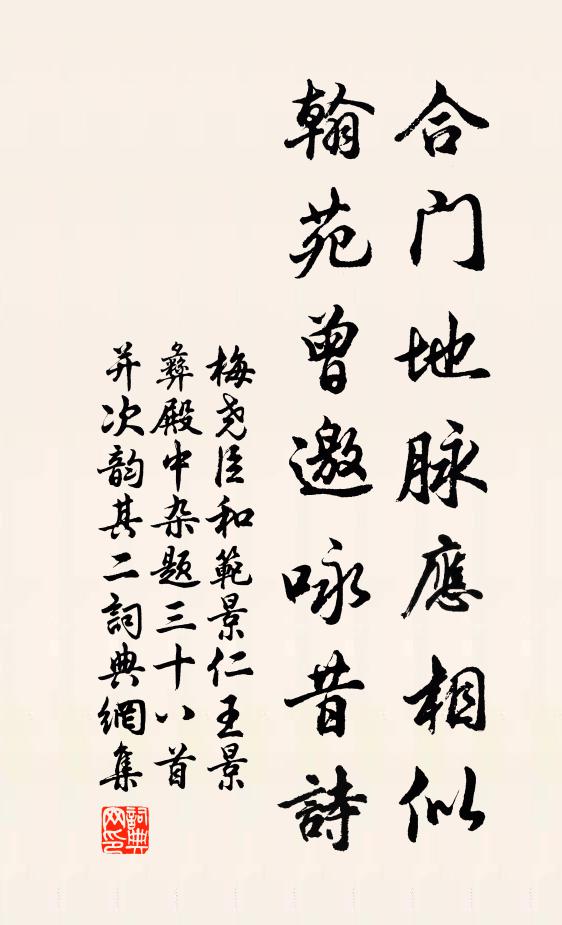 合门地脉應相似
翰苑曾邀咏昔詩
梅尧臣和範景仁王景
彝殿中杂题三十八首
并次韵其二詞典網集
詞典
网印